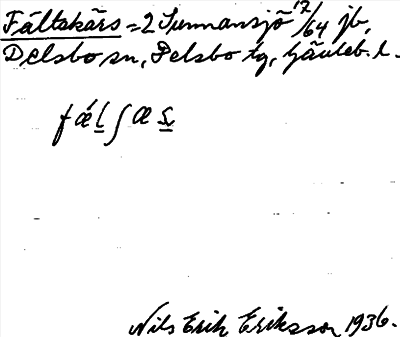 Fältskärs = 2 Sunnansjö 17/64 jb,
Delsbo sn, Delsbo tg, Gävleb. l.
fǽl̲ʃæs̲
Nils Erik Eriksson 1936.